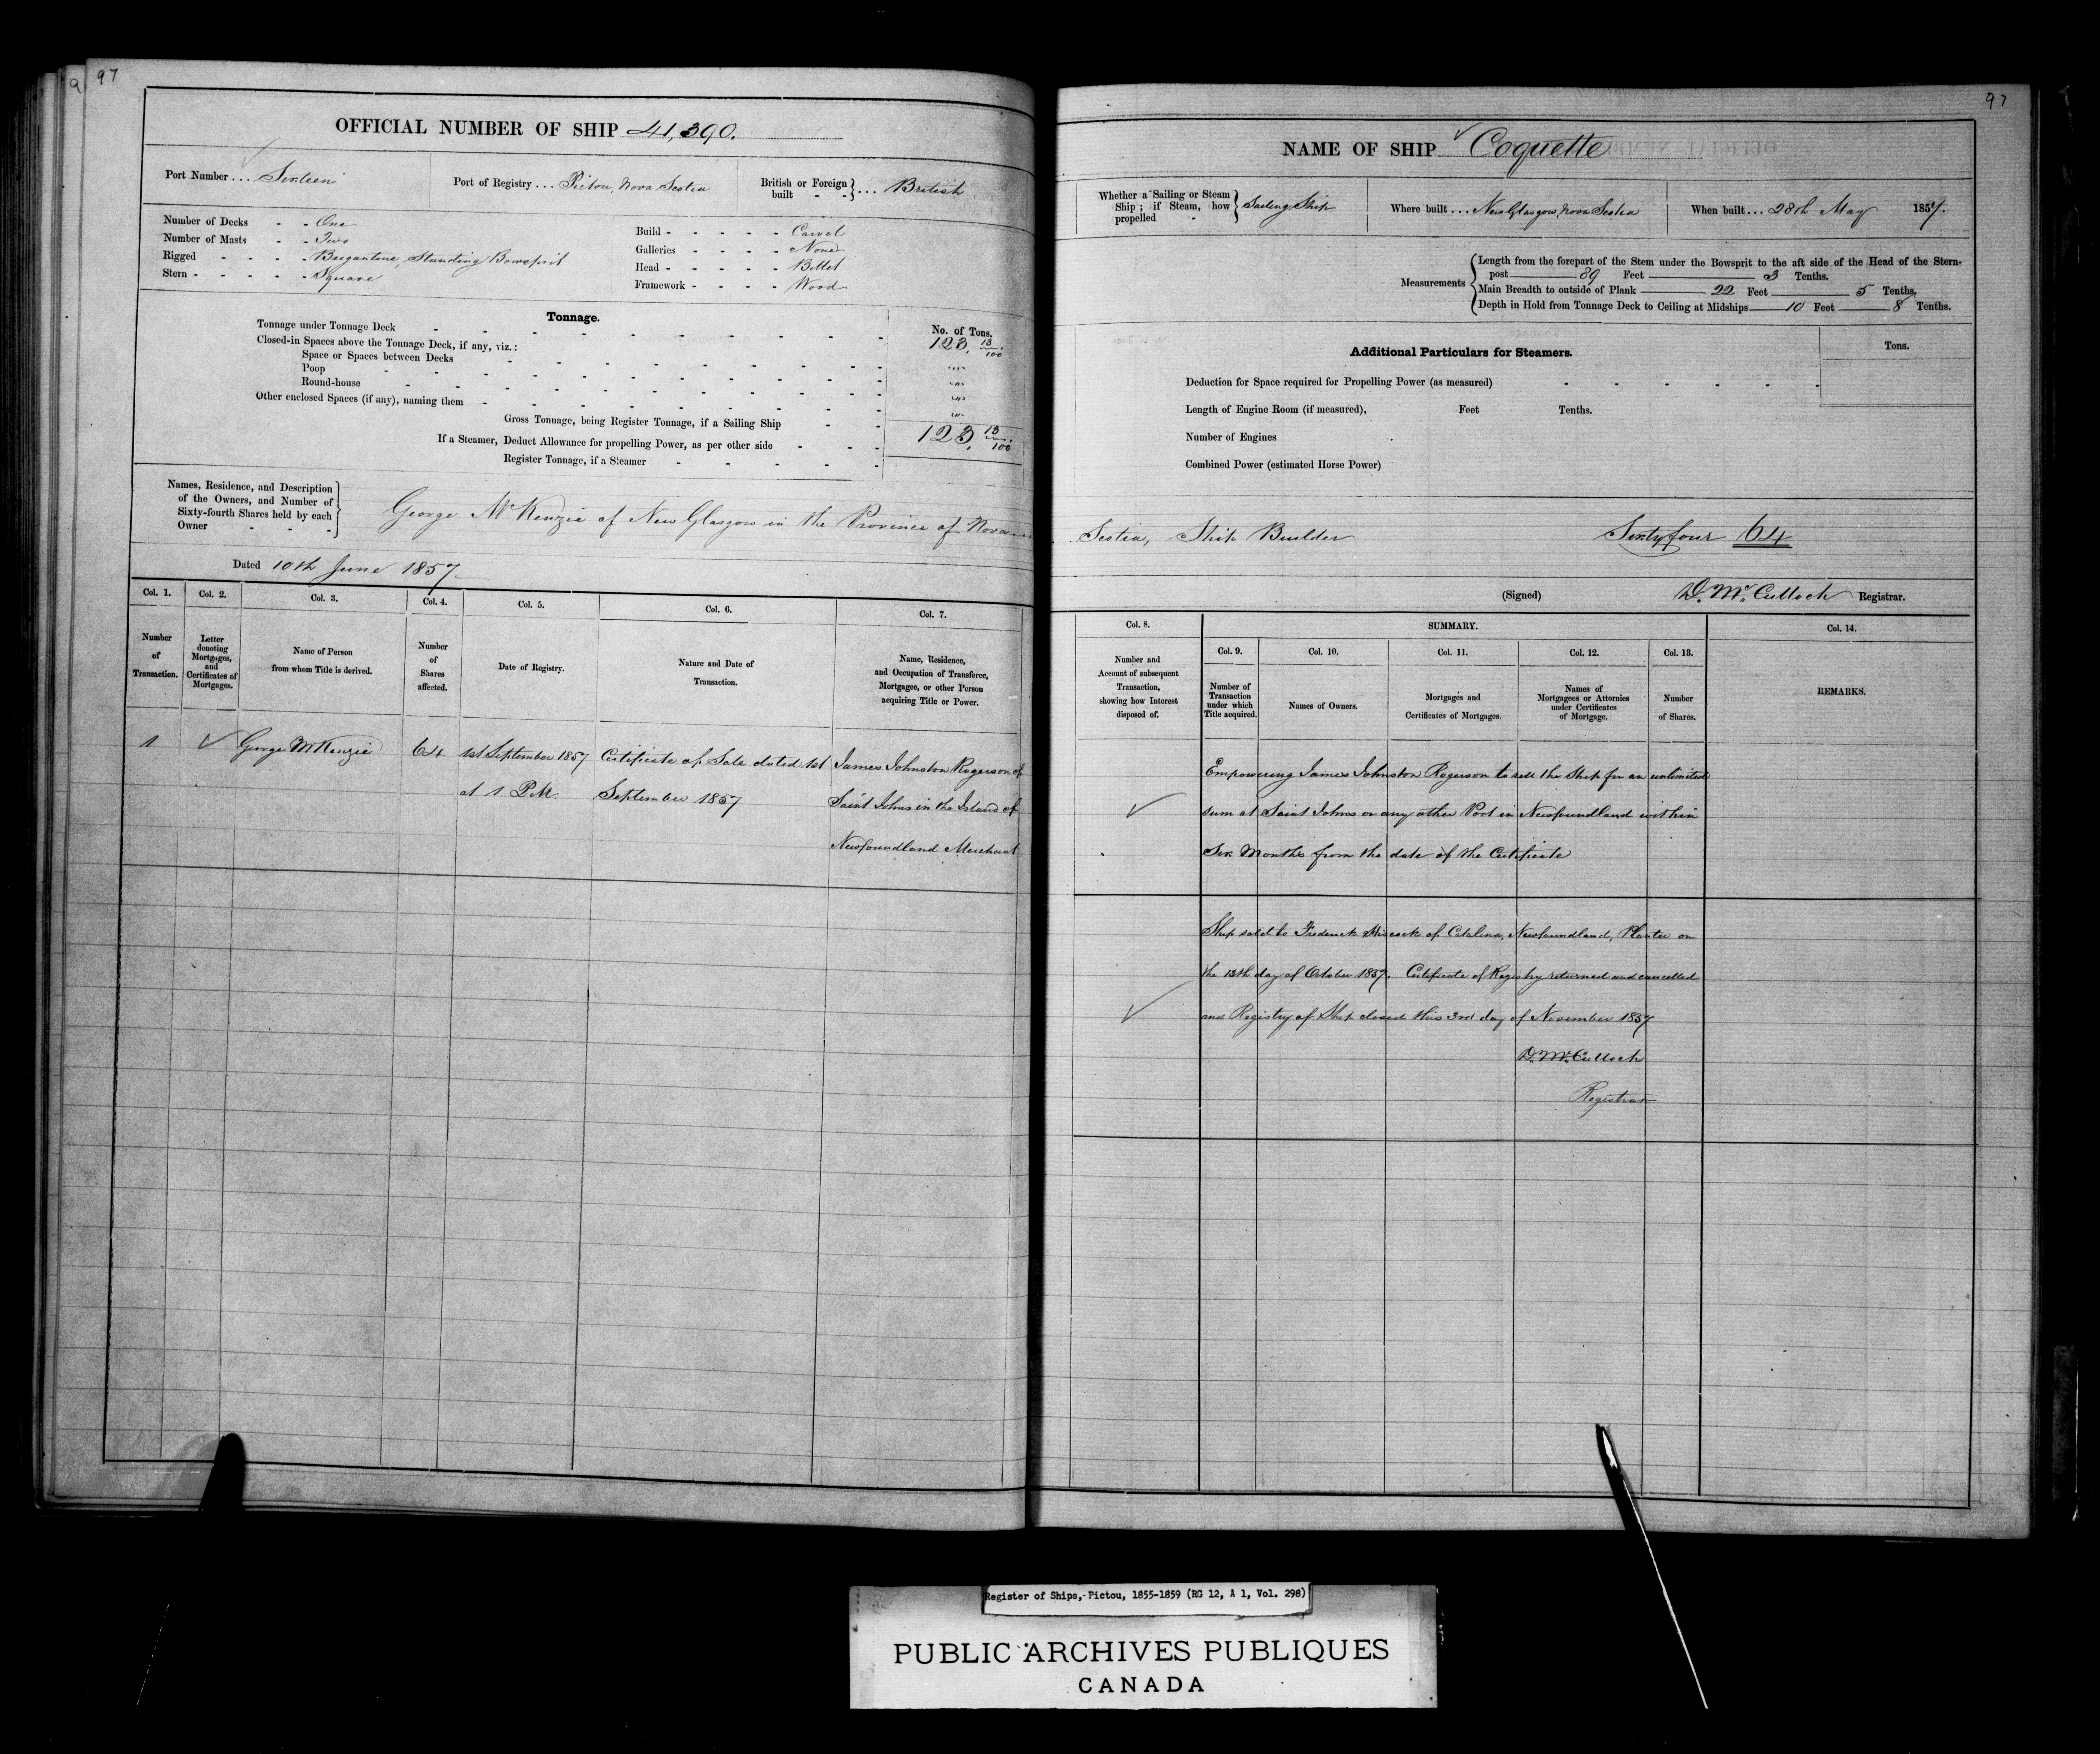 97
OFFICIAL NUMBER OF SHIP 41,390.
Port Number ... Sixteen
Port of Registry ... Pictou, Nova Scotia
British or Foreign built - - } ... British
Number of Decks - - One
Number of Masts - - Two
Rigged - - - - Brigantine, Standing Bowsprit
Stern - - - - - Square
Build - - - - - Carvel
Galleries - - - - None
Head - - - - - Billet
Framework - - - - Wood
Tonnage.
No. of Tons.
Tonnage under Tonnage Deck - 123, 13/100
Closed-in Spaces above the Tonnage Deck, if any, viz.:
Space or Spaces between Decks
Poop
Round-house
Other enclosed Spaces (if any), naming them
Gross Tonnage, being Register Tonnage, if a Sailing Ship 123, 13/100
If a Steamer, Deduct Allowance for propelling Power, as per other side
Register Tonnage, if a Steamer
Names, Residence, and Description
of the Owners, and Number of
Sixty-fourth Shares held by each
Owner - - -
George McKenzie of New Glasgow in the Province of Nova
Dated 10th June 1857
Col. 1. Col. 2. Col. 3. Col. 4. Col. 5. Col. 6. Col. 7.
Number of Transaction.
Letter denoting Mortgages, and Certificates of Mortgages.
Name of Person from whom Title is derived.
Number of Shares affected.
Date of Registry.
Nature and Date of Transaction.
Name, Residence, and Occupation of Transferee, Mortgagee, or other Person acquiring Title or Power.
1 George McKenzie 64 1st September 1857 Certificate of Sale dated 1st James Johnston Rogerson of
at 1 P.M. September 1857 Saint Johns in the Island of
Newfoundland Merchant
97
NAME OF SHIP Coquette
Whether a Sailing or Steam Ship; if Steam, how propelled - } Sailing Ship
Where built ... New Glasgow, Nova Scotia
When built ... 28th May 1857.
Measurements
Length from the forepart of the Stem under the Bowsprit to the aft side of the Head of the Stern-
post 89 Feet 3 Tenths.
Main Breadth to outside of Plank 22 Feet 5 Tenths.
Depth in Hold from Tonnage Deck to Ceiling at Midships 10 Feet 8 Tenths.
Additional Particulars for Steamers.
Tons.
Deduction for Space required for Propelling Power (as measured)
Length of Engine Room (if measured), Feet Tenths.
Number of Engines
Combined Power (estimated Horse Power)
Scotia, Ship Builder Sixty four 64
(Signed) D. McCulloch Registrar.
Col. 8. SUMMARY. Col. 14.
Col. 9. Col. 10. Col. 11. Col. 12. Col. 13.
Number and Account of subsequent Transaction, showing how Interest disposed of.
Number of Transaction under which Title acquired.
Names of Owners.
Mortgages and Certificates of Mortgages.
Names of Mortgagees or Attornies under Certificates of Mortgage.
Number of Shares.
REMARKS.
Empowering James Johnston Rogerson to sell the Ship for an unlimited
sum at Saint Johns or any other Port in Newfoundland within
Six Months from the date of the Certificate
Ship sold to Frederick of Catalina, Newfoundland, Planter on
the 13th day of October 1857. Certificate of Registry returned and cancelled
and Registry of Ship closed this 3rd day of November 1857
D. McCulloch
Registrar
Register of Ships, Pictou, 1855-1859 (RG 12, A 1, Vol. 298)
PUBLIC ARCHIVES PUBLIQUES
CANADA